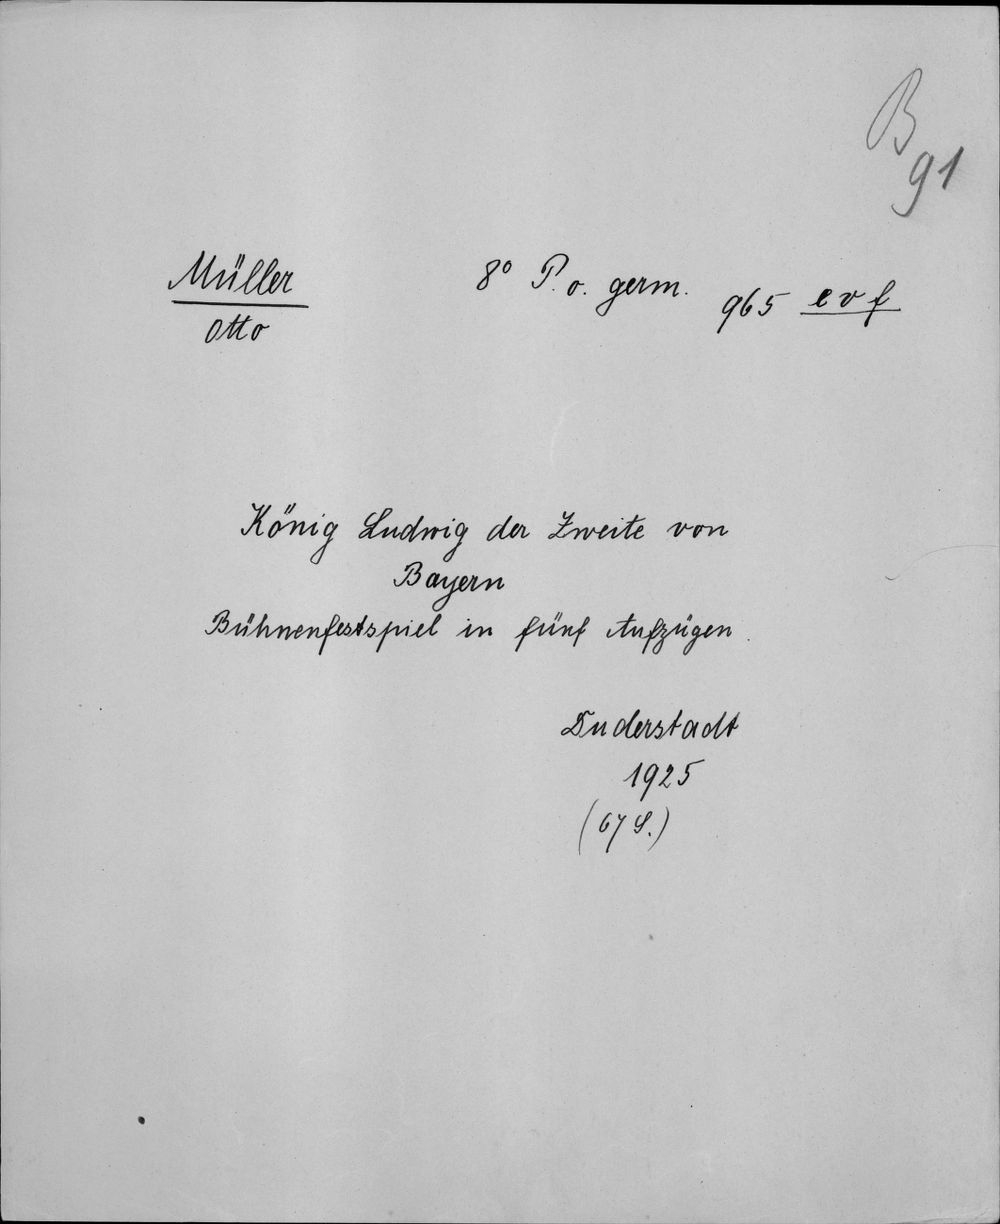 B
91
Müller
Otto
8° P. o. germ. 965 evf
König Ludwig der Zweite von
Bayern
Bühnenfestspiel in fünf Aufzügen.
Duderstadt
1925
(67 S.)